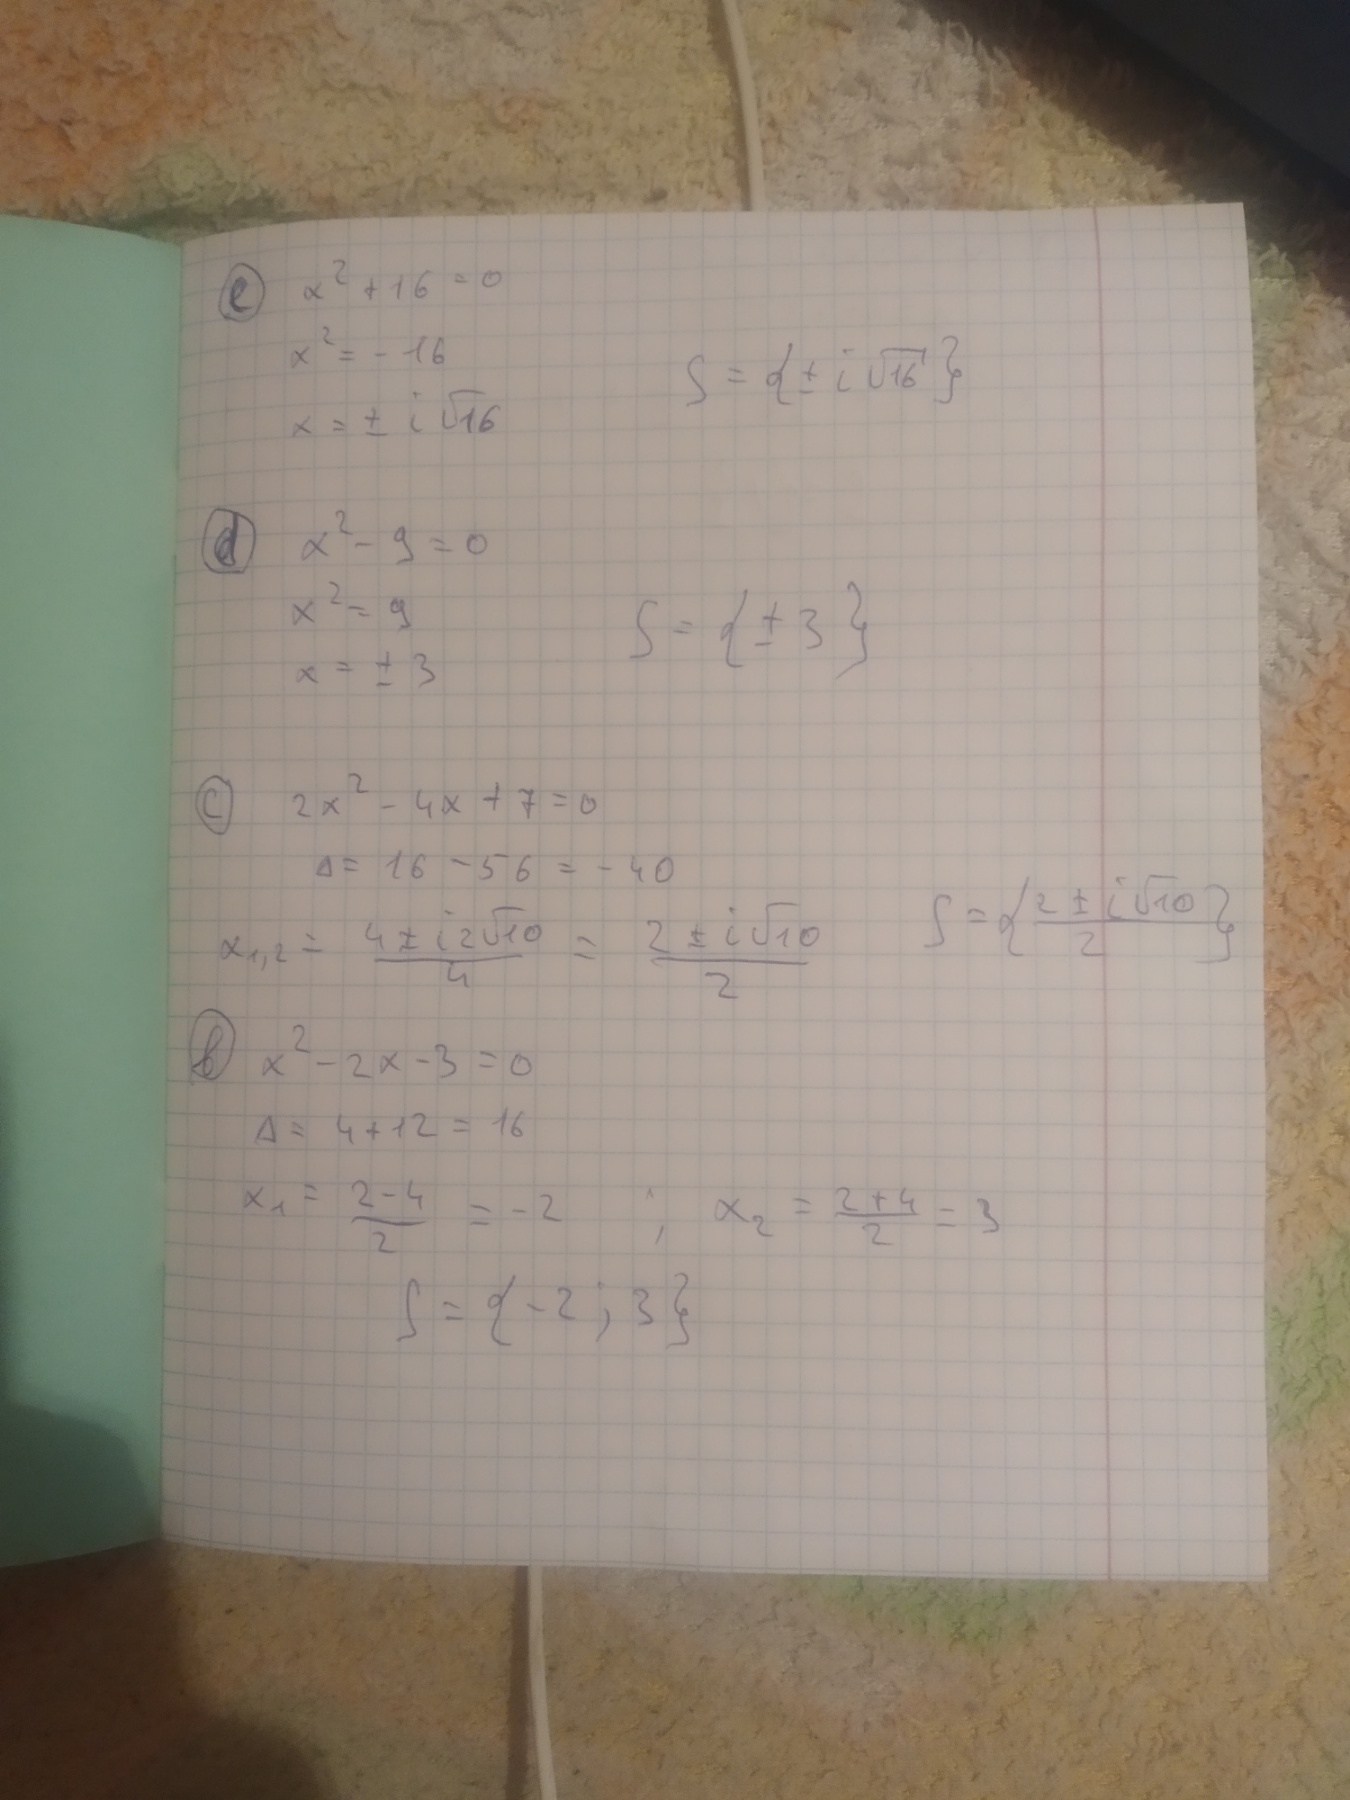 e x² + 16 = 0
x² = - 16
x = ± i √16 S = {± i √16}
d x² - 9 = 0
x² = 9
x = ± 3 S = {± 3}
c 2x² - 4x + 7 = 0
Δ = 16 - 56 = - 40
x₁,₂ = (4 ± i 2√10)/4 = (2 ± i √10)/2 S = {(2 ± i √10)/2}
b x² - 2x - 3 = 0
Δ = 4 + 12 = 16
x₁ = (2 - 4)/2 = - 2 ; x₂ = (2 + 4)/2 = 3
S = {- 2 ; 3}